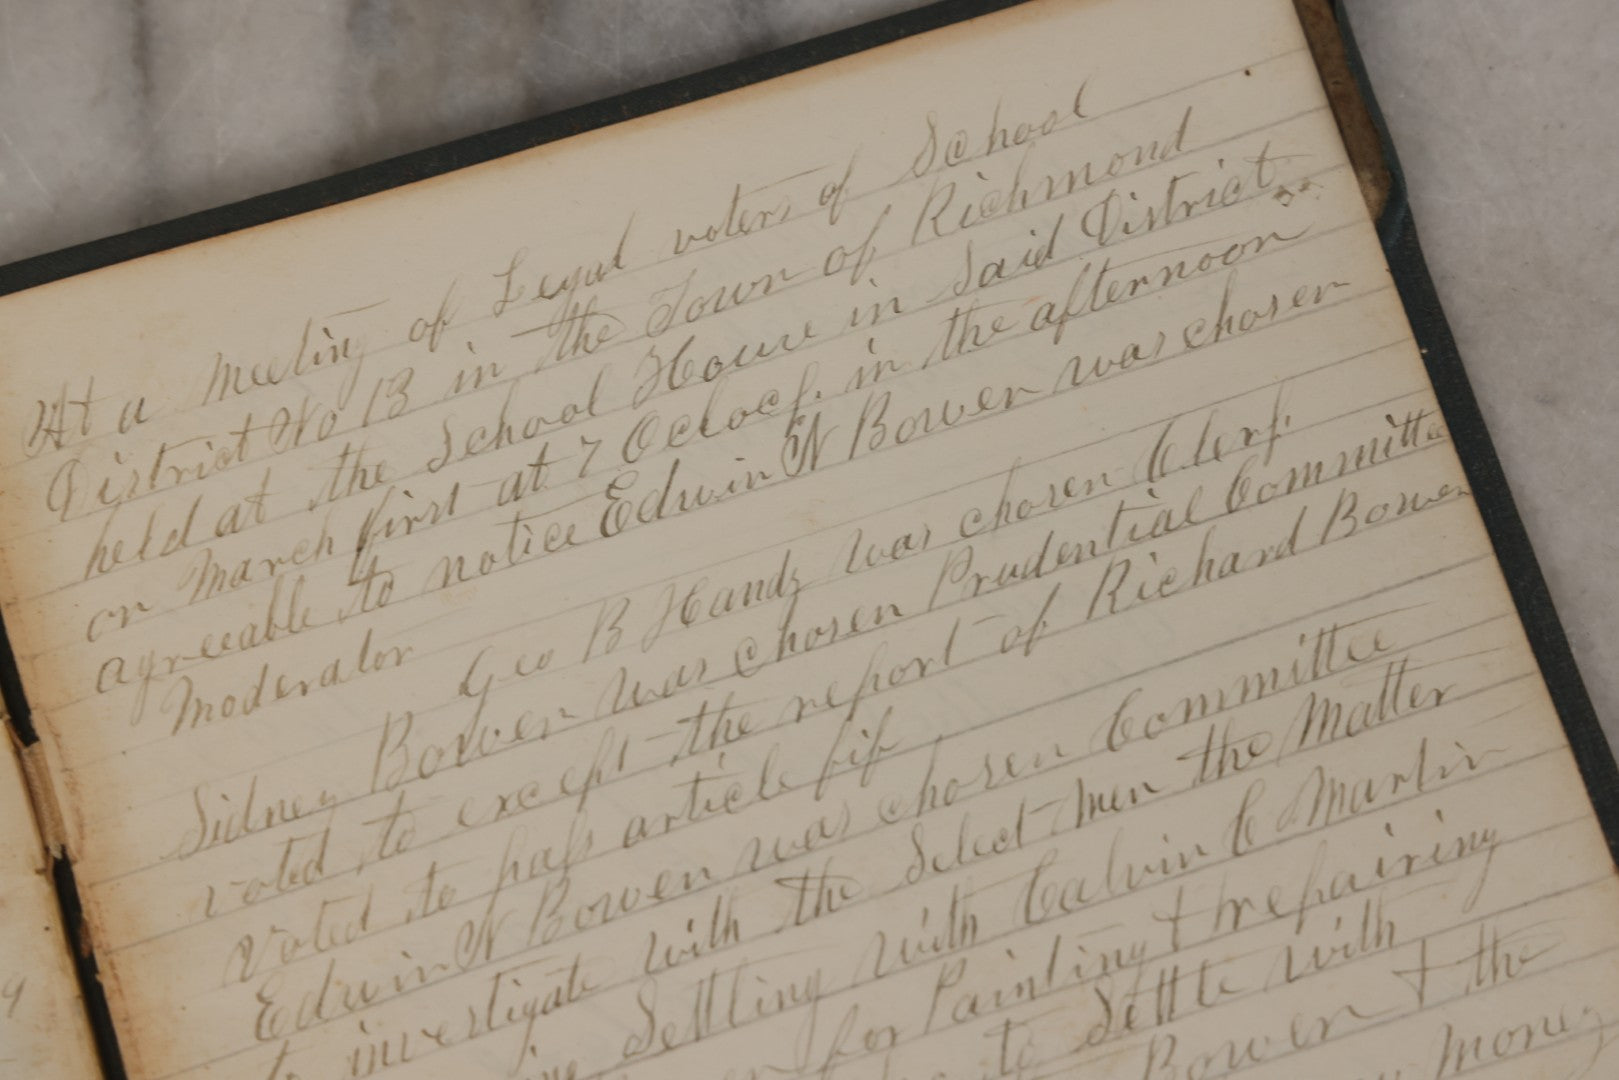 At a meeting of Legal voters of School
District No 13 in the Town of Richmond
held at the School House in Said District
on March first at 7 Oclock in the afternoon
agreeable to notice Edwin N Bowen was chosen
Moderator
Geo B Handy was chosen Clerk
Sidney Bowen was chosen Prudential Committee
voted to except the report of Richard Bowen
Voted to pass article fif
Edwin N Bowen was chosen Committee
to investigate with the Select men the Matter
Settling with Calvin C Martin
for Painting & repairing
to Settle with
Bowen & the
money